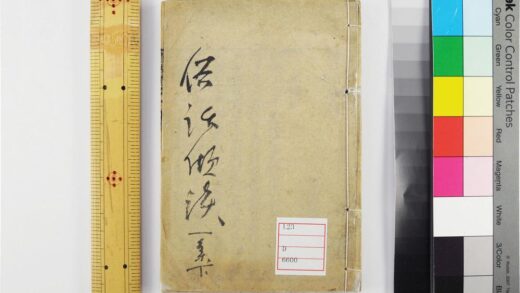 俗話傾談一集下
123
D
6600
Color Control Patches
Cyan
Green
Yellow
Red
Magenta
White
3/Color